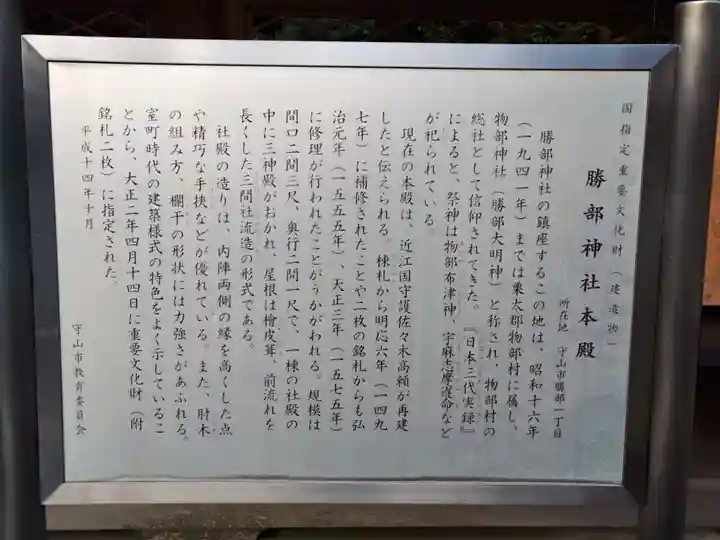 国指定重要文化財（建造物）
勝部神社本殿
所在地　守山市勝部一丁目
勝部神社の鎮座するこの地は、昭和十六年
（一九四一年）までは栗太郡物部村に属し、
物部神社（勝部大明神）と称され、物部村の
総社として信仰されてきた。『日本三代実録』
によると、祭神は物部布津神、宇麻志摩遅命など
が祀られている
現在の本殿は、近江国守護佐々木高頼が再建
したと伝えられる。棟札から明応六年（一四九
七年）に補修されたことや二枚の銘札からも弘
治元年（一五五五年）、天正三年（一五七五年）
に修理が行われたことがうかがわれる。規模は
間口二間三尺、奥行二間一尺で、一棟の社殿の
中に三神殿がおかれ、屋根は檜皮葺、前流れを
長くした三間社流造の形式である。
社殿の造りは、内陣両側の縁を高くした点
や精巧な手挟などが優れている。また、肘木
の組み方、欄干の形状には力強さがあふれる。
室町時代の建築様式の特色をよく示しているこ
とから、大正二年四月十四日に重要文化財（附
銘札二枚）に指定された。
平成十四年十月
守山市教育委員会